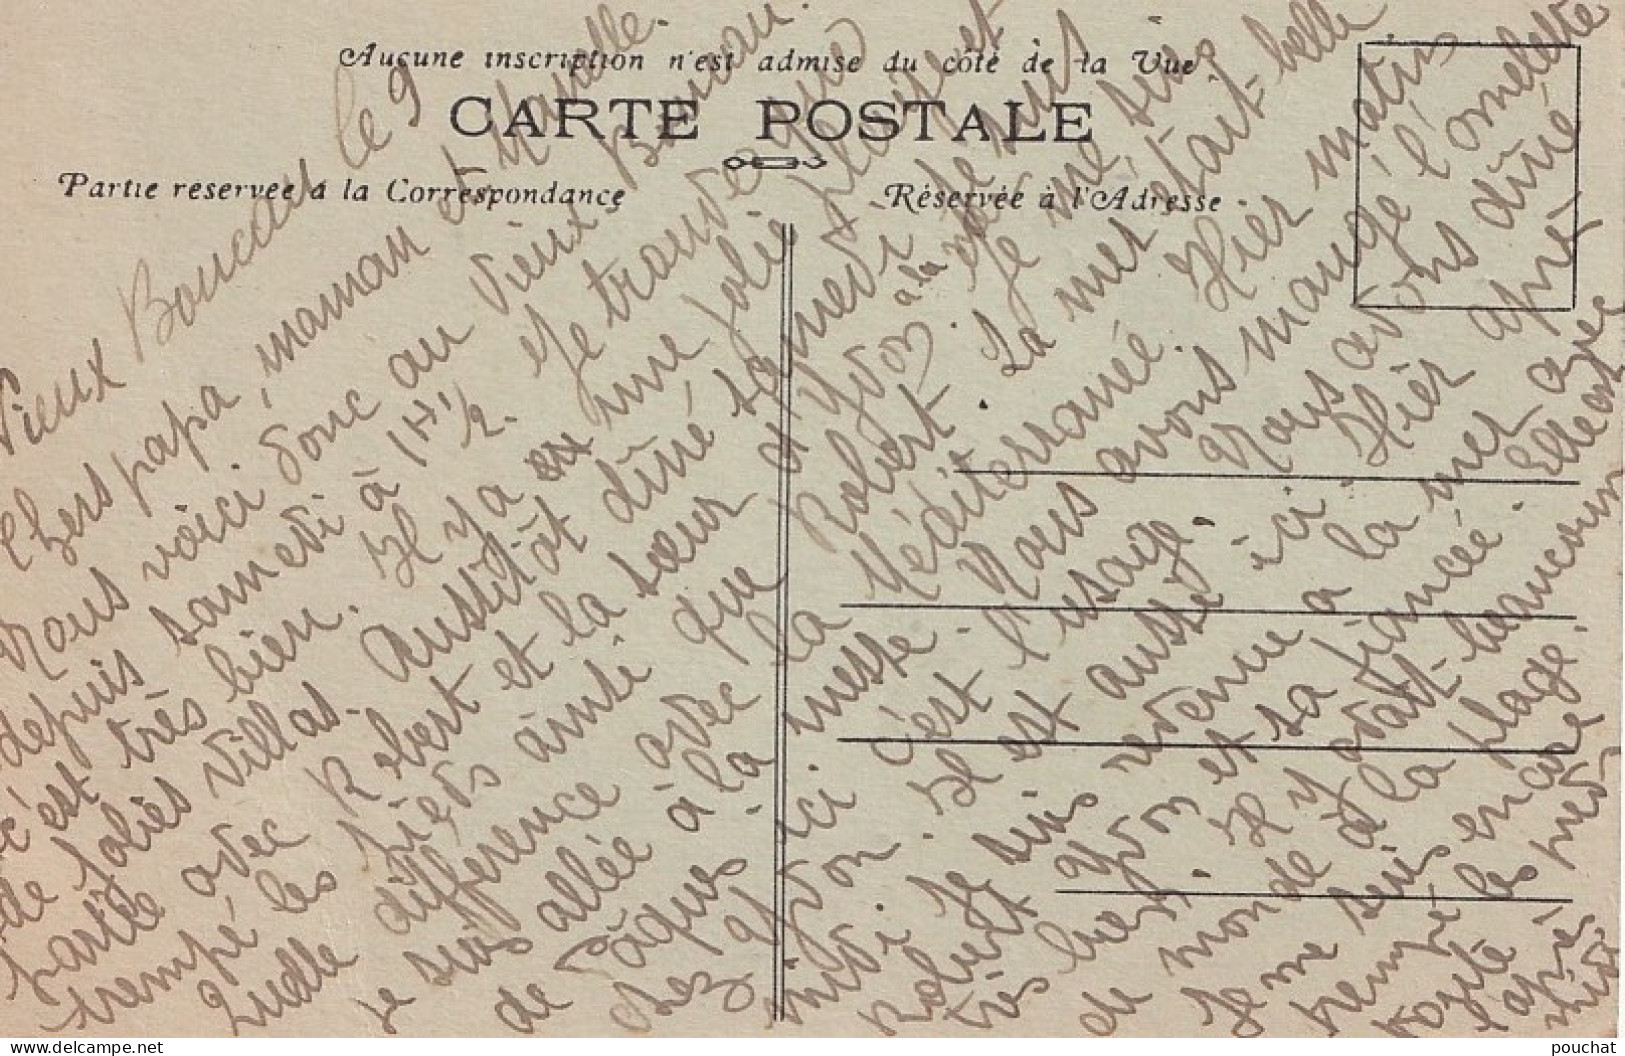 Aucune inscription n'est admise du côté de la Vue.
CARTE POSTALE
Partie réservée à la Correspondance
Réservée à l'Adresse
Vieux Boucau le 9
Chers papa, maman et
Nous voici donc au Vieux Boucau
depuis samedi à 1H 1/2. Je trouve que
c'est très bien. Il y a une jolie plage et
de jolies villas. Aussitôt dîné samedi je suis
partie avec Robert et la sœur d'Yvon à la mer. Je me suis
trempé les pieds ainsi que Robert. La mer était belle
Quelle différence avec la Méditerranée. Hier matin
je suis allée à la messe. Nous avons mangé l'omelette
de Pâques ici. c'est l'usage. Nous avons dîné
chez Yvon. Il est aussi ici. Hier après
midi je suis revenue à la mer avec
Robert Yvon et sa fiancée. Elle est
très bien. Il y avait beaucoup
de monde à la plage.
Je me suis encore
trempé les pieds
toute
l'après
midi.
pouchat